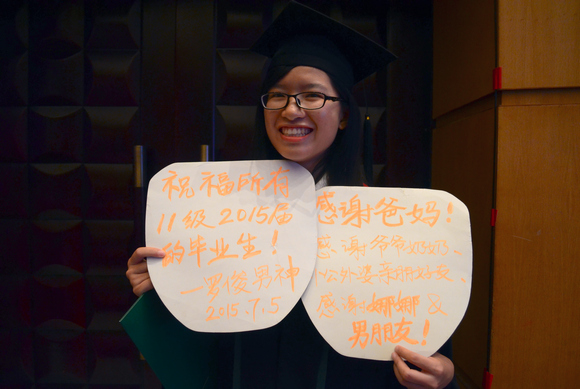 祝福所有
11级2015届
的毕业生！
—罗俊男神
2015.7.5
感谢爸妈！
感谢爷爷奶奶、
公外婆亲朋好友、
感谢娜娜&
男朋友！